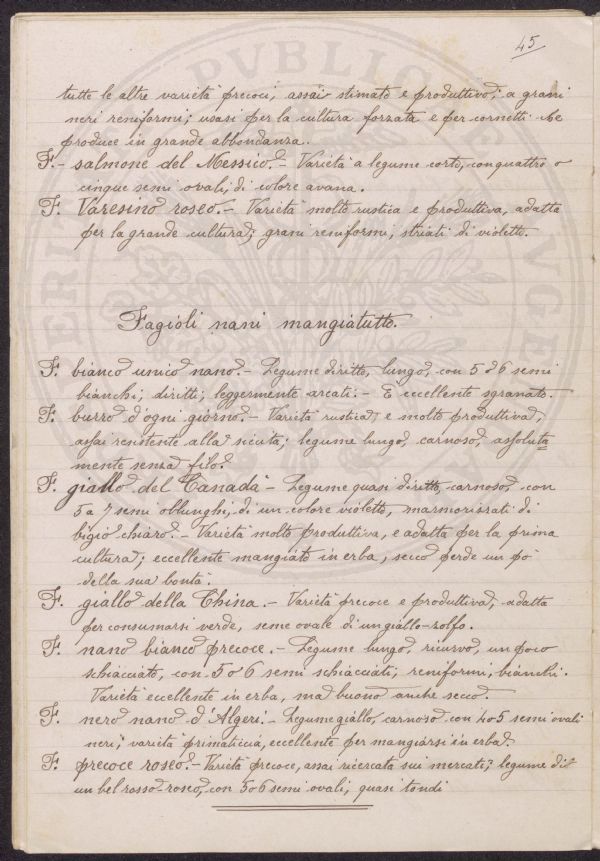 45
tutte le altre varietà precoci, assai stimato e produttivo; a grani
neri reniformi; usasi per la cultura forzata e per cornetti che
produce in grande abbondanza.
F. - salmone del Messico. - Varietà a legume corto, con quattro o
cinque semi ovali, di colore avana.
F. Varesino roseo. - Varietà molto rustica e produttiva, adatta
per la grande cultura; grani reniformi, striati di violetto.
Fagioli nani mangiatutto.
F. bianco unico nano. - Legume diritto, lungo, con 5 o 6 semi
bianchi; diritti; leggermente arcati. - È eccellente sgranato.
F. burro d'ogni giorno. - Varietà rustica e molto produttiva,
assai resistente alla siccità; legume lungo, carnoso, assoluta
mente senza filo.
F. giallo del Canadà - Legume quasi diritto, carnoso, con
5 a 7 semi oblunghi, di un colore violetto, marmorizzati di
bigio chiaro. - Varietà molto produttiva, e adatta per la prima
cultura; eccellente mangiato in erba, secco perde un pò
della sua bontà.
F. giallo della China. - Varietà precoce e produttiva, adatta
per consumarsi verde, seme ovale d'un giallo-zolfo.
F. nano bianco precoce. - Legume lungo, ricurvo, un poco
schiacciato, con 5 o 6 semi schiacciati, reniformi, bianchi.
Varietà eccellente in erba, ma buono anche secco.
F. nero nano d'Algeri. - Legume giallo, carnoso, con 4 o 5 semi ovali
neri; varietà primaticcia, eccellente per mangiarsi in erba.
F. precoce roseo. - Varietà precoce, assai ricercata sui mercati; legume di
un bel rosso-roseo, con 5 o 6 semi ovali, quasi tondi